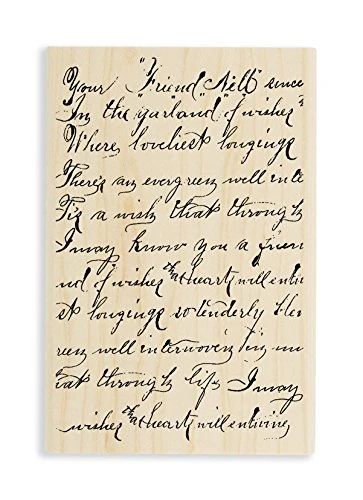 Your "Friend" "Nell" since
In the garland "of wishes"
Where loveliest longings
There's an evergreen well inte
Tis a wish that through
I may know you a frien
nd of wishes that hearts will entwi
st longings so tenderly
reen well interwoven tis
hat through life I may
wishes that hearts will entwine